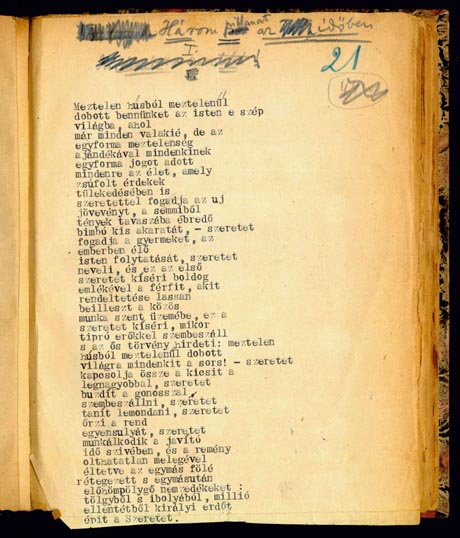 Három pillanat az időben
21
I.
Meztelen húsból meztelenül
dobott bennünket az isten e szép
világba, ahol
már minden valakié, de az
egyforma meztelenség
ajándékával mindenkinek
egyforma jogot adott
mindenre az élet, amely
zsúfolt érdekek
tülekedésében is
szeretettel fogadja az uj
jövevényt, a semmiből
tények tavaszába ébredő
bimbó kis akaratát, - szeretet
fogadja a gyermeket, az
emberben élő
isten folytatását, szeretet
neveli, és ez az első
szeretet kiséri boldog
emlékével a férfit, akit
rendeltetése lassan
beilleszt a közös
munka szent üzemébe, ez a
szeretet kiséri, mikor
tipró erőkkel szembeszáll
s az ős törvény hirdeti: meztelen
húsból meztelenül dobott
világra mindenkit a sors! - szeretet
kapcsolja össze a kicsit a
legnagyobbal, szeretet
buzdit a gonosszal
szembeszállni, szeretet
tanit lemondani, szeretet
őrzi a rend
egyensulyát, szeretet
munkálkodik a javitó
idő szivében, és a remény
olthatatlan melegével
éltetve az egymás fölé
rétegezett s egymásután
előhömpölygő nemzedékeket :
tölgyből s ibolyából, millió
ellentétből királyi erdőt
épit a Szeretet.